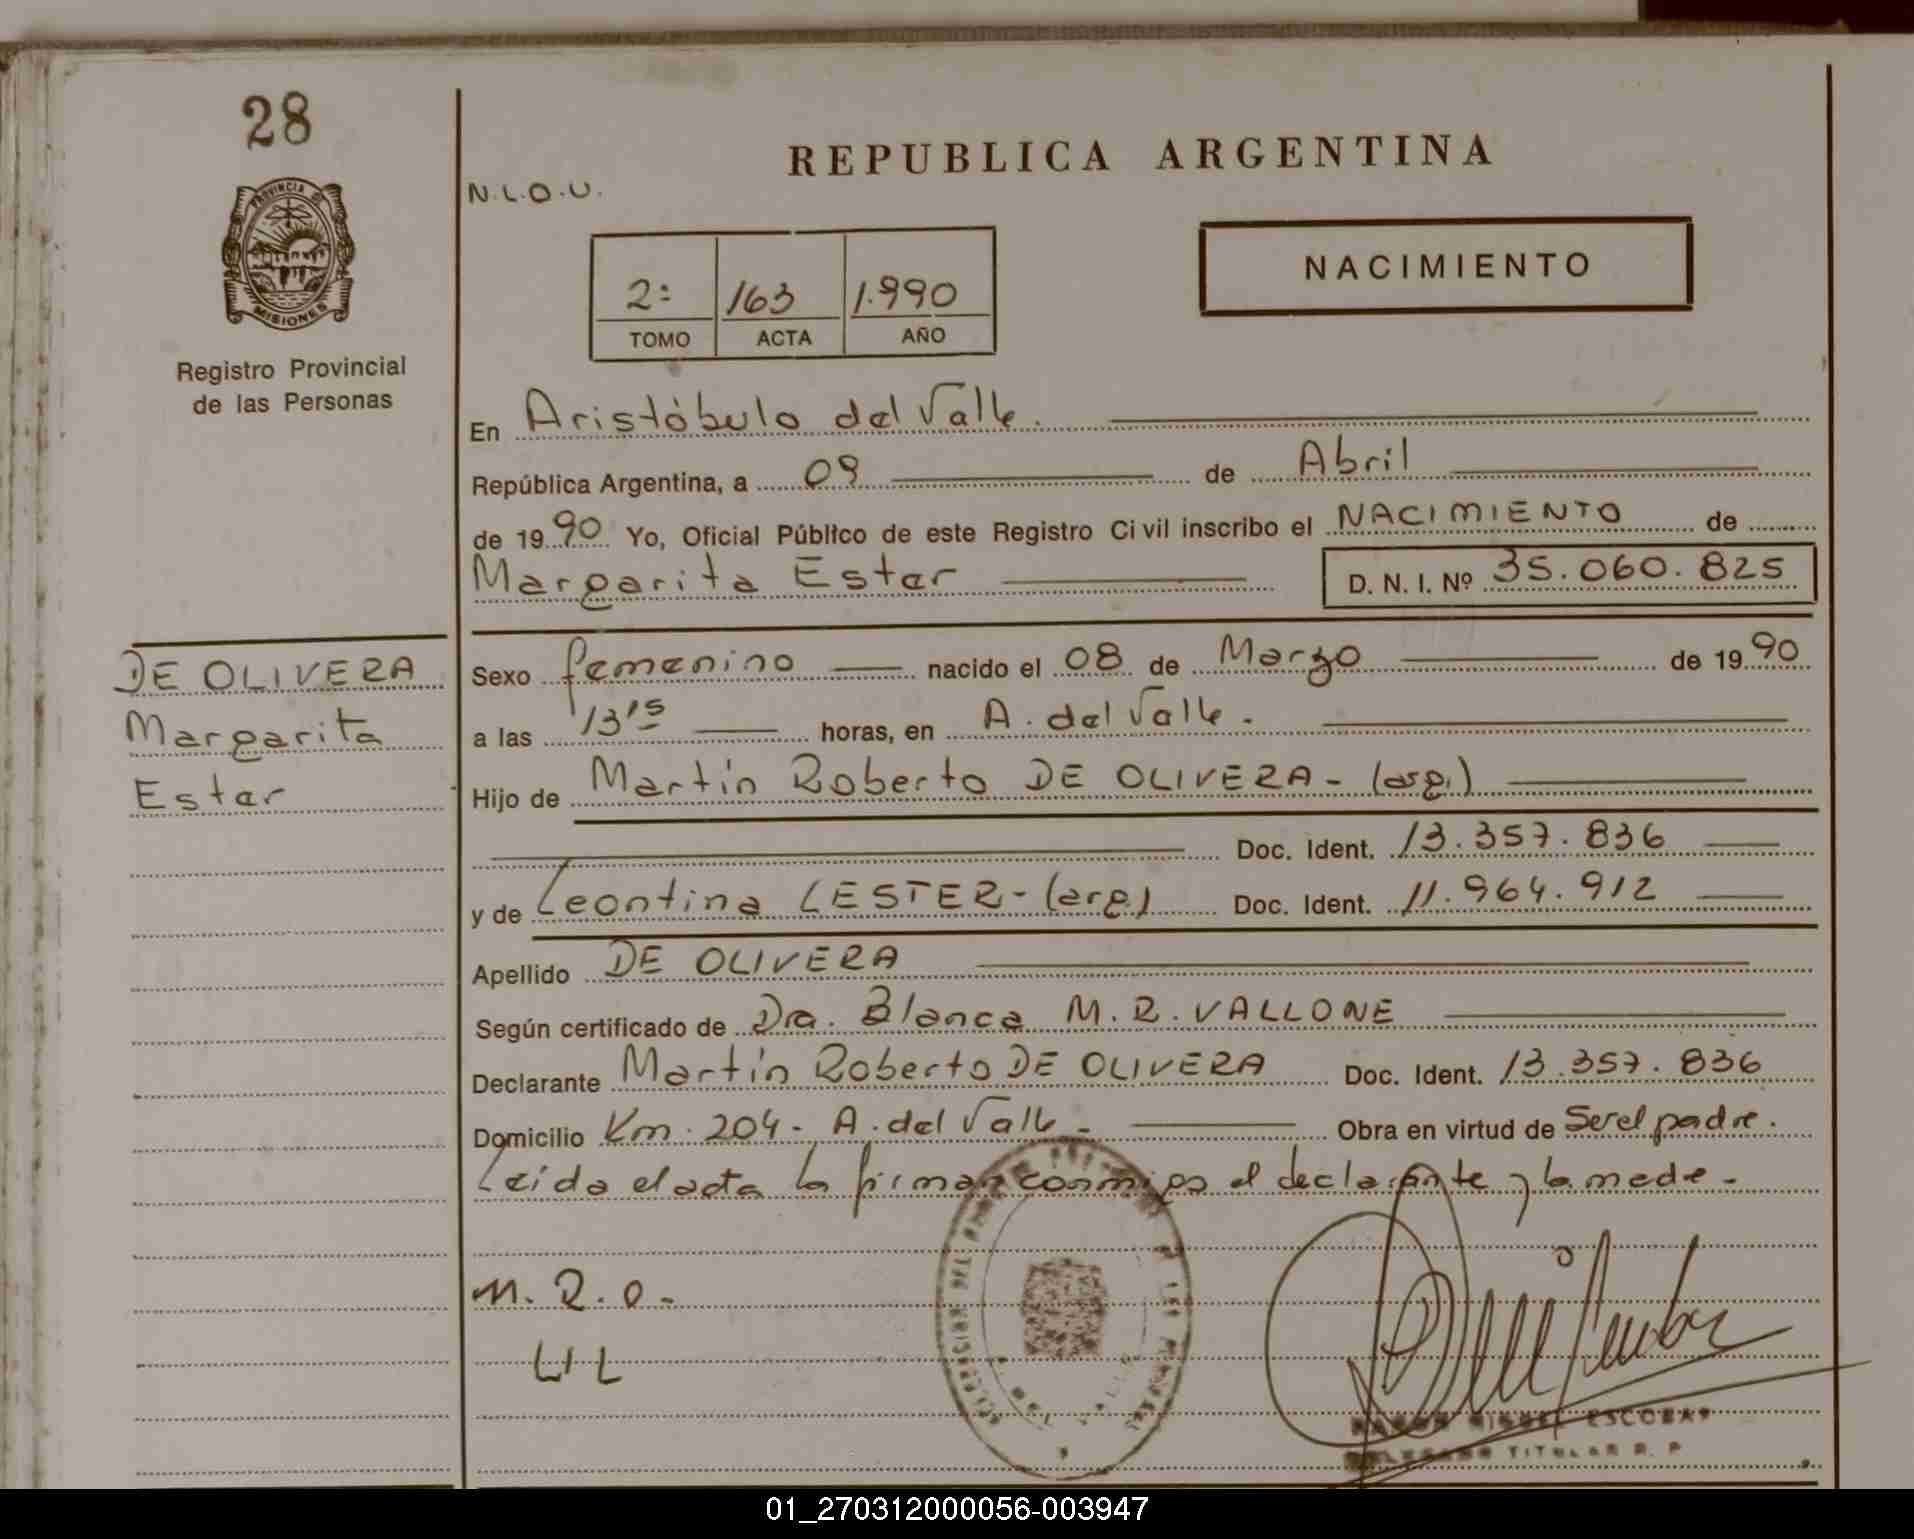 28
REPUBLICA ARGENTINA
N.L.O.U.
PROVINCIA DE
MISIONES
Registro Provincial
de las Personas
NACIMIENTO
2º 163 1.990
TOMO ACTA AÑO
En Aristóbulo del Valle.
República Argentina, a 09 de Abril
de 1990 Yo, Oficial Público de este Registro Civil inscribo el NACIMIENTO de
Margarita Ester
D. N. I. Nº 35.060.825
DE OLIVERA
Margarita
Ester
Sexo femenino nacido el 08 de Marzo de 1990
a las 13 15 horas, en A. del Valle.
Hijo de Martín Roberto DE OLIVERA - (arg.)
Doc. Ident. 13.357.836
y de Leontina LESTER - (arg.) Doc. Ident. 11.964.912
Apellido DE OLIVERA
Según certificado de Dra. Blanca M. R. VALLONE
Declarante Martín Roberto DE OLIVERA Doc. Ident. 13.357.836
Domicilio Km. 204 - A. del Valle - Obra en virtud de Ser el padre.
Leída el acta la firman conmigo el declarante y la madre -
M. R. O.
LIL
MIGUEL ESCOBAR
TITULAR R. P.
01_270312000056-003947